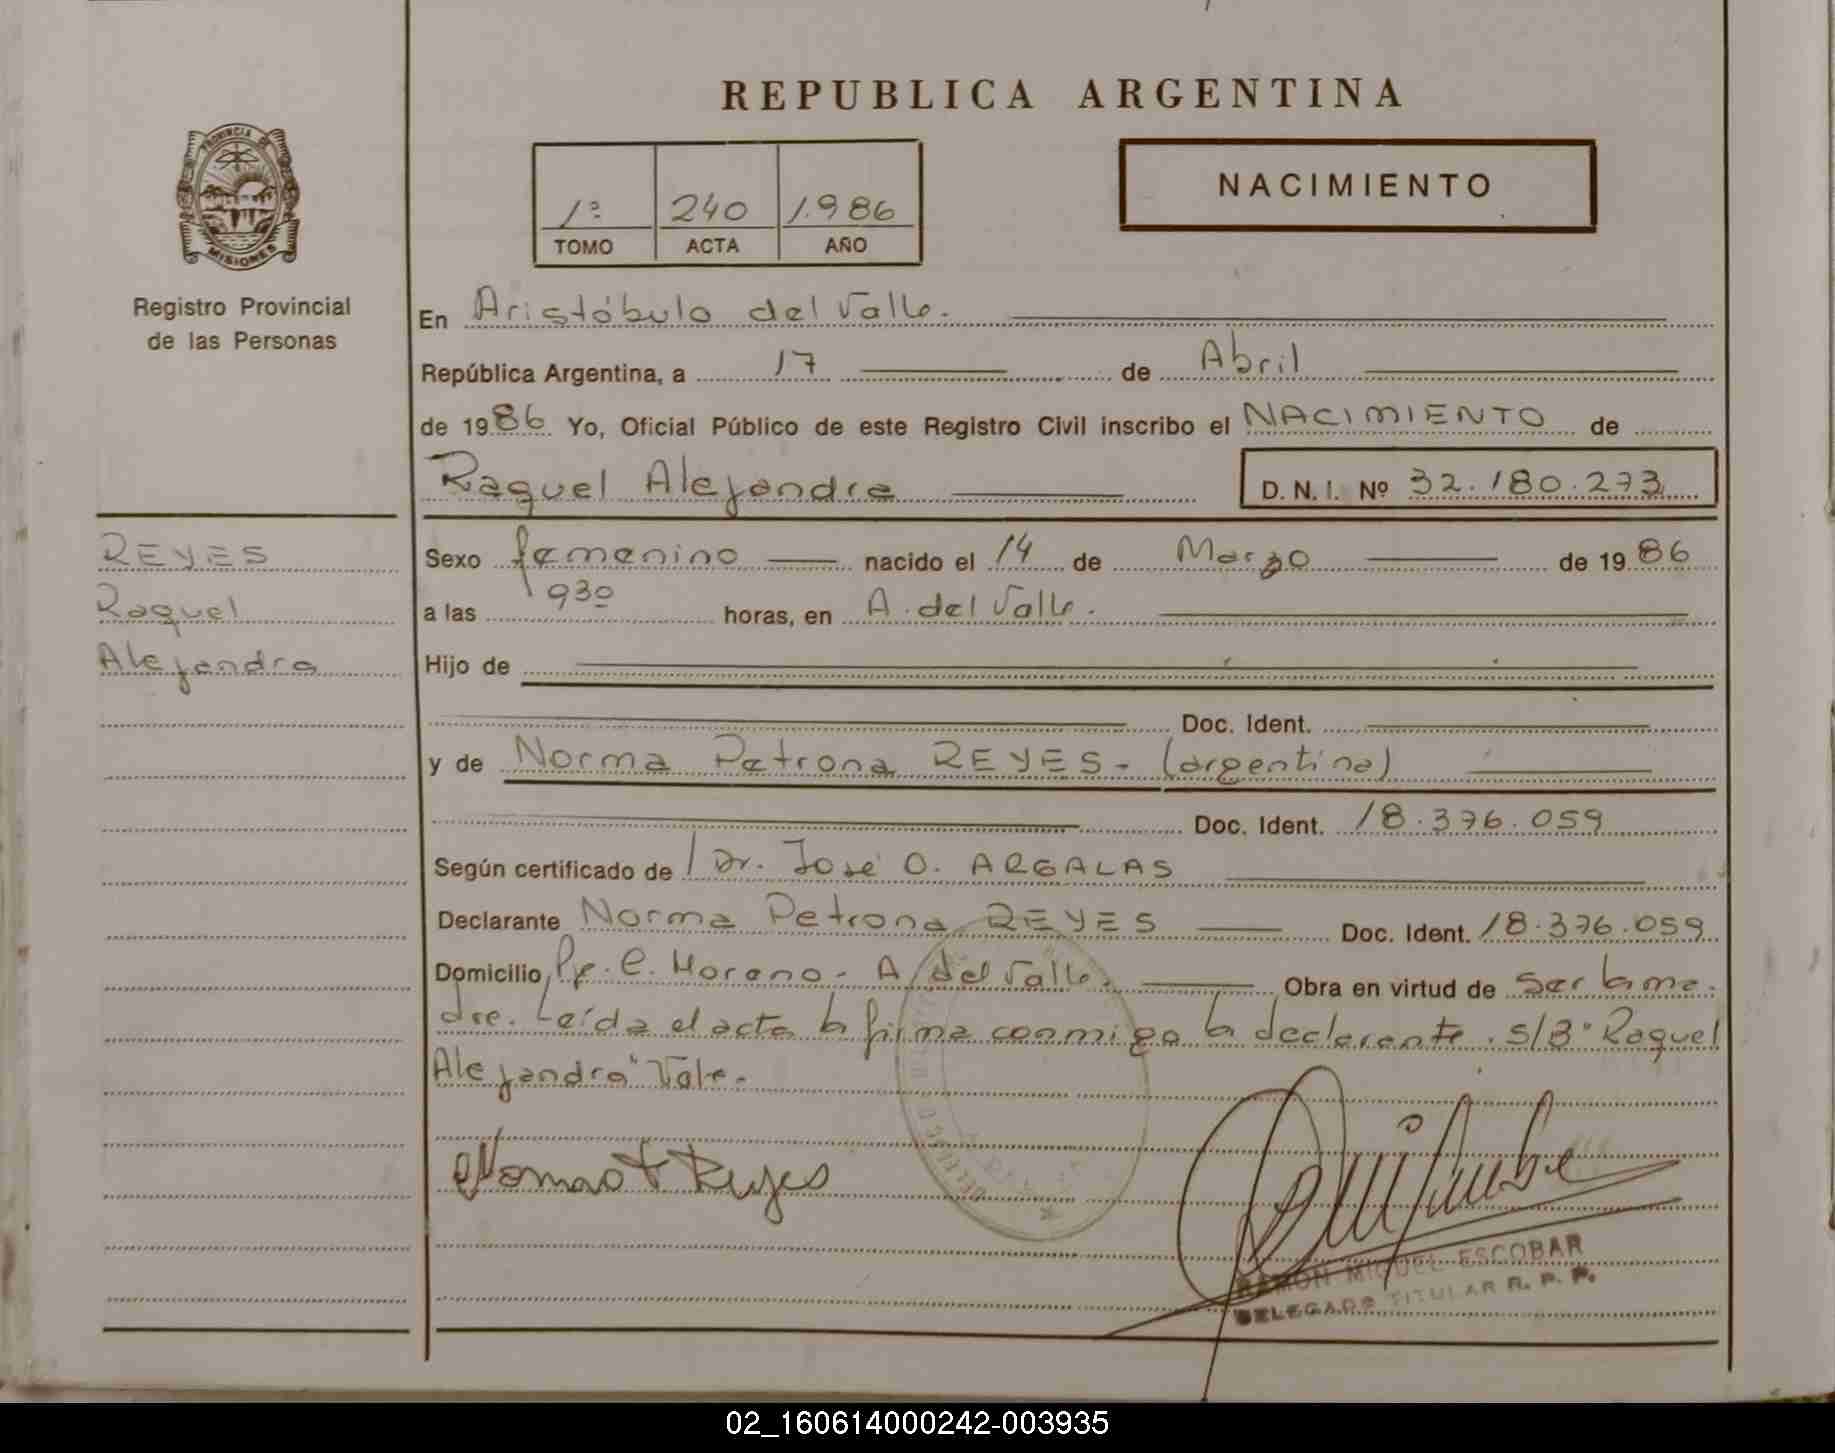 REPUBLICA ARGENTINA
PROVINCIA DE
MISIONES
Registro Provincial
de las Personas
1º 240 1.986
TOMO ACTA AÑO
NACIMIENTO
En Aristóbulo del Valle.
República Argentina, a 17 de Abril
de 1986 Yo, Oficial Público de este Registro Civil inscribo el NACIMIENTO de
Raquel Alejandra D.N.I. Nº 32.180.273
REYES
Raquel
Alejandra
Sexo femenino nacido el 14 de Marzo de 1986
a las 930 horas, en A. del Valle.
Hijo de
Doc. Ident.
y de Norma Petrona REYES- (argentina)
Doc. Ident. 18.376.059
Según certificado de Dr. José O. ARGALAS
Declarante Norma Petrona REYES Doc. Ident. 18.376.059
Domicilio Pje. C. Moreno- A. del Valle. Obra en virtud de ser la ma-
dre. Leída el acta la firma conmigo la declarante. S/B "Raquel
Alejandra" Vale.
Reyes
RAMON MIGUEL ESCOBAR
DELEGADO TITULAR R. P. P.
02_160614000242-003935